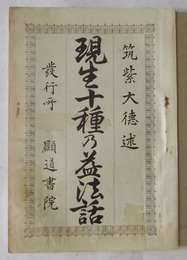 筑紫大德述
現生十種乃益法話
發行所 顯道書院